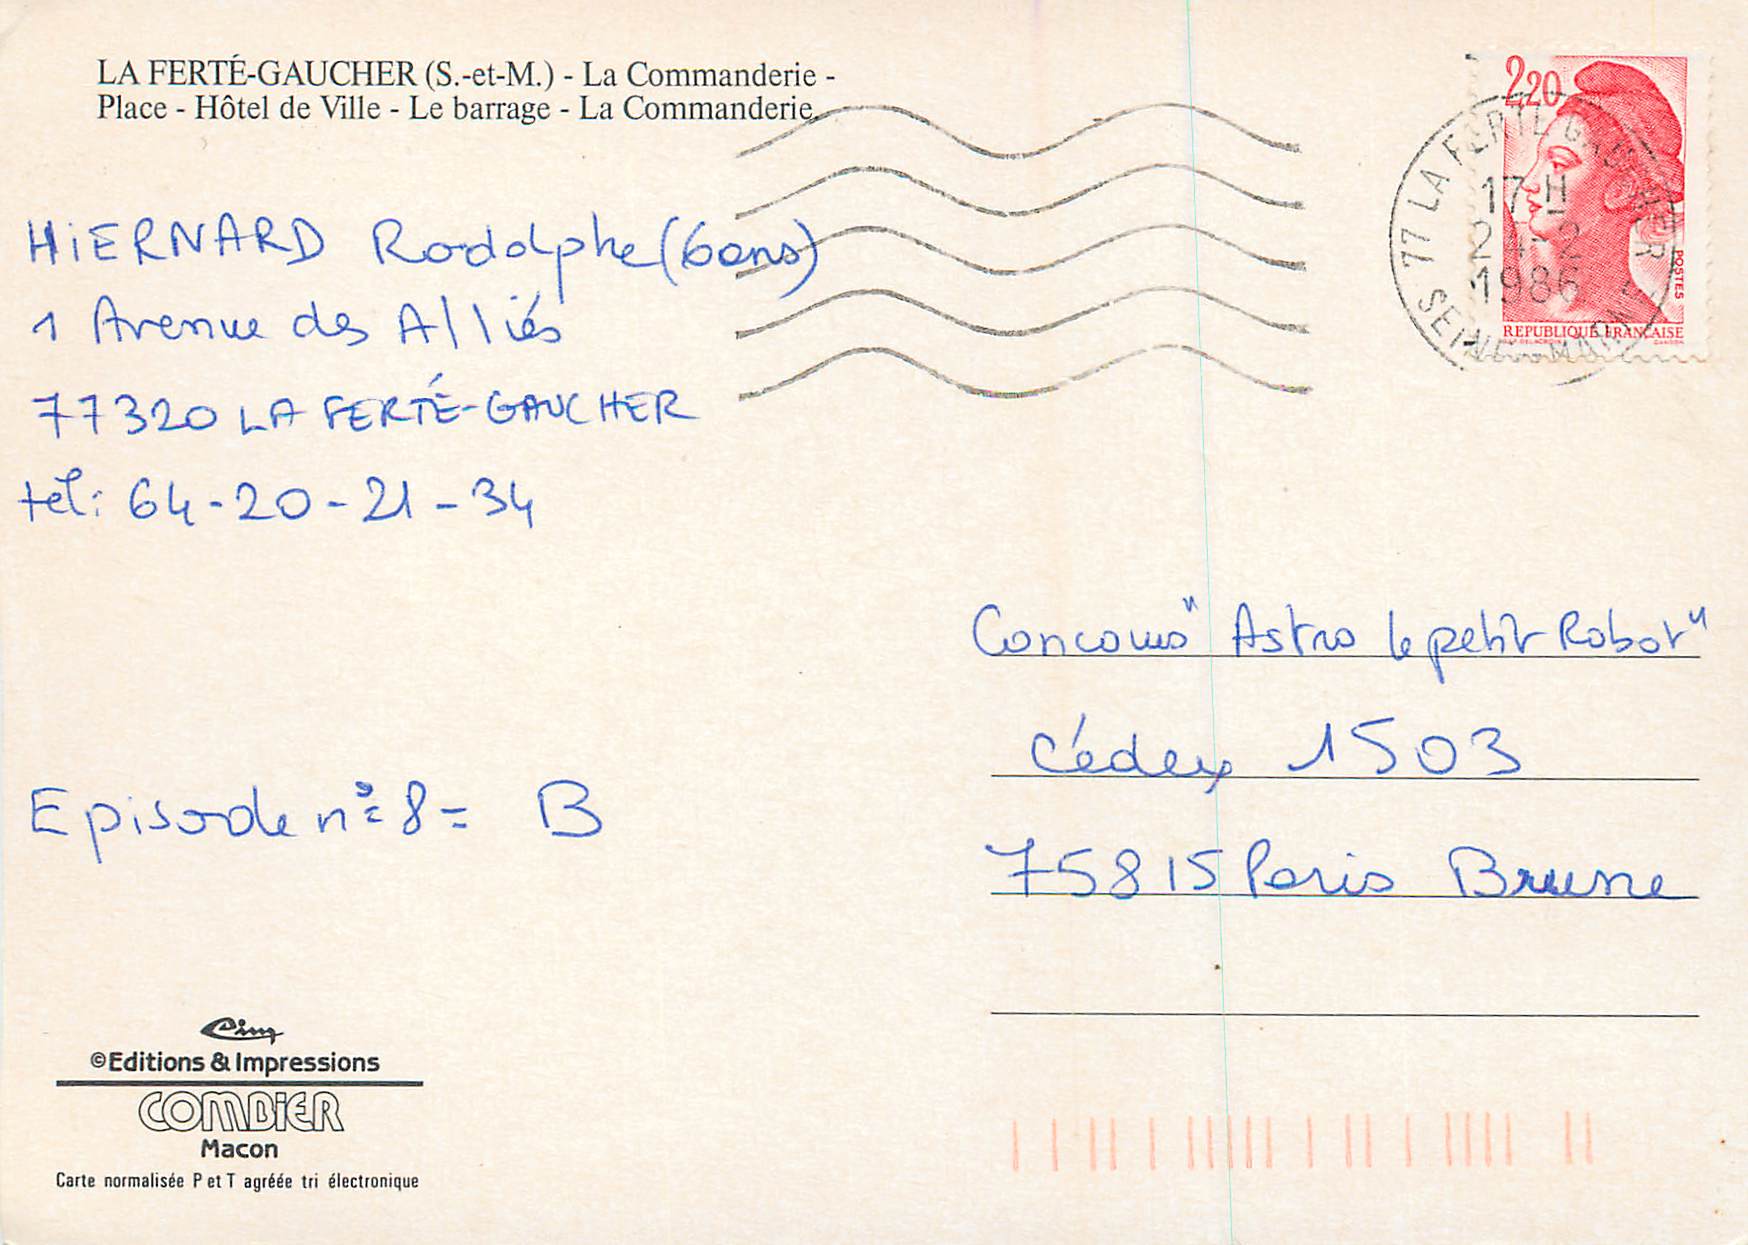 LA FERTÉ-GAUCHER (S.-et-M.) - La Commanderie -
Place - Hôtel de Ville - Le barrage - La Commanderie.
2,20
POSTES
REPUBLIQUE FRANÇAISE
77 LA FERTE GAUCHER
17 H
24-2
1986
SEINE - MARNE
HiERNARD Rodolphe (6ans)
1 Avenue des Alliés
77320 LA FERTÉ-GAUCHER
tél: 64-20-21-34
Concours "Astro le petit Robot"
Cédex 1503
75815 Paris Brune
Episode n° 8 = B
Cim
©Editions & Impressions
COMBIER
Macon
Carte normalisée P et T agréée tri électronique